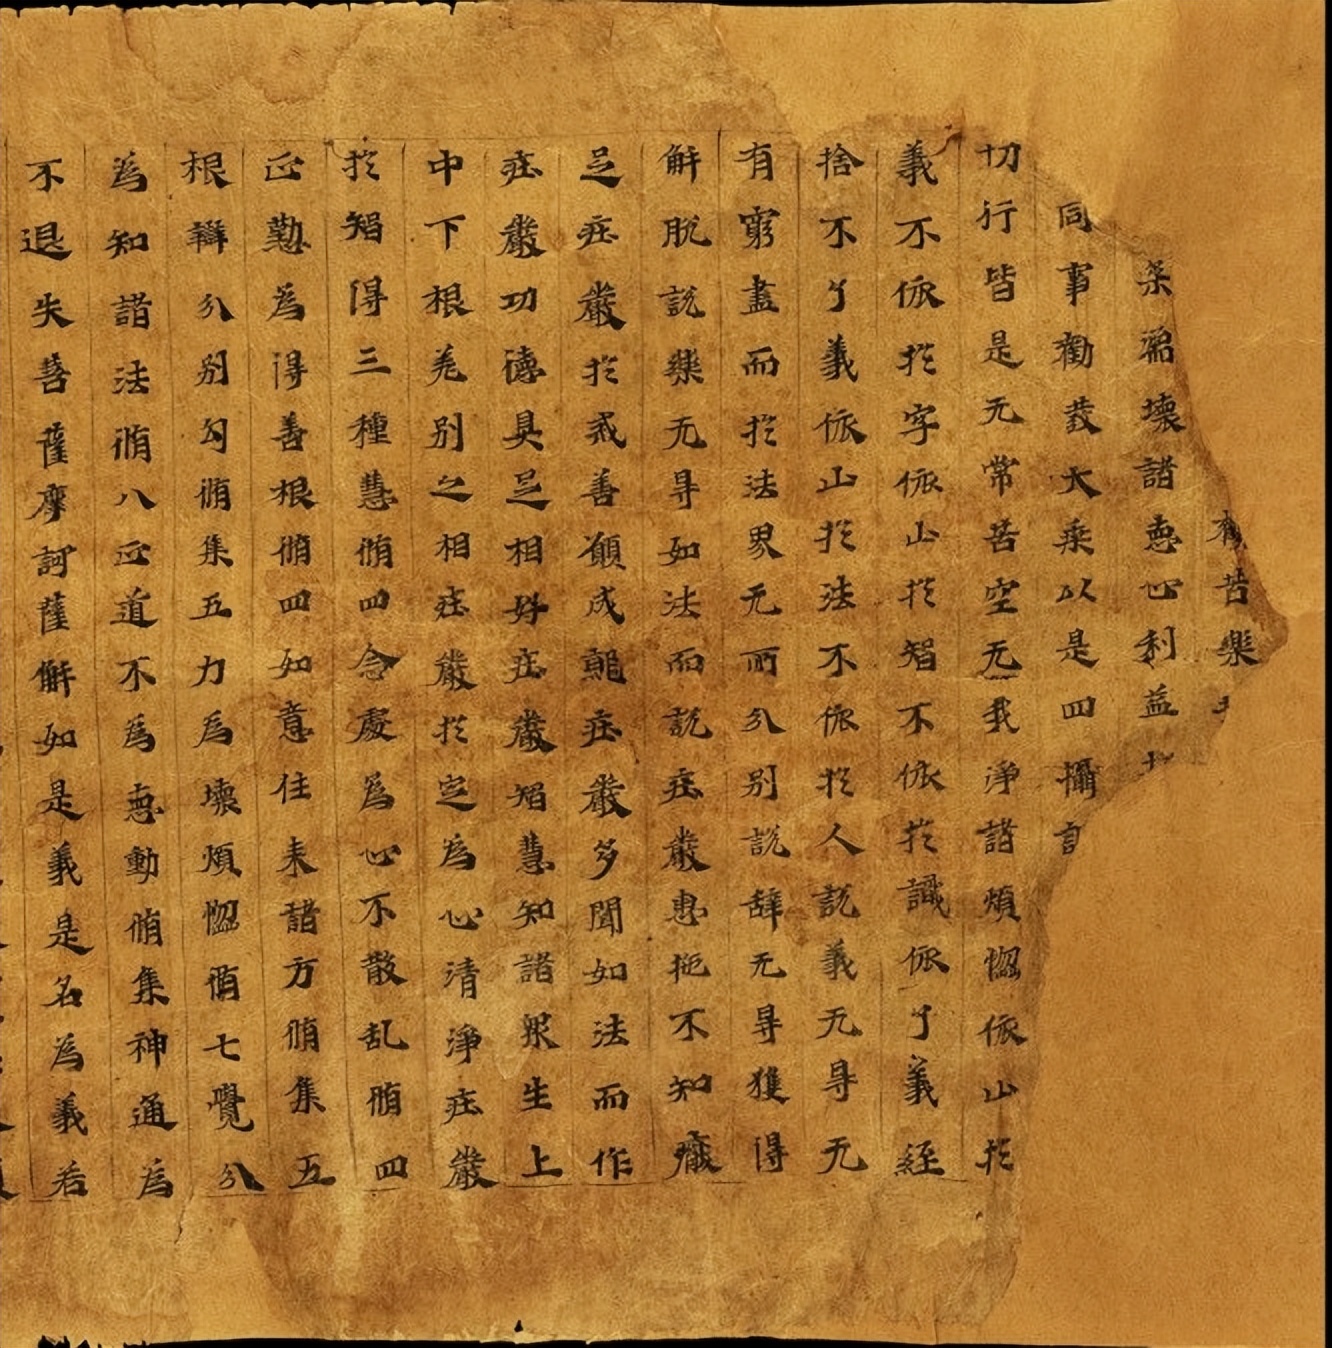 苦樂
濡壞諸惡心利益
同事勸發大乘以是四攝
切行皆是无常苦空无我淨諸煩惱依止於
義不依於字依止於智不依於識依了義經
捨不了義依止於法不依於人說義无㝵无
有窮盡而於法界无所分別說辞无㝵獲得
解脫說樂无㝵如法而說莊嚴惠施不知
足莊嚴於戒善願成就莊嚴多聞如法而作
莊嚴功德具足相好莊嚴智慧知諸眾生上
中下根差別之相莊嚴於定為心清淨莊嚴
於智得三種慧脩四念處為心不散乱脩四
正勤為得善根脩四如意住来諸方脩集五
根辯分別勾脩集五力為壞煩惱脩七覺分
為知諸法脩八正道不為惡動脩集神通為
不退失菩薩摩訶薩解如是義是名為義若